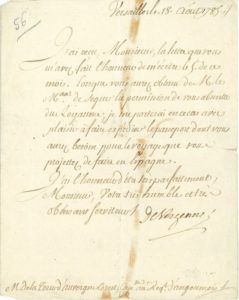 56
Versailles le 18. Aout 1785
J'ai reçu, Monsieur, la lettre que vous
m'avez fait l'honneur de m'écrire le 5. de ce
mois. Lorsque vous aurez obtenu de M. le
M.al de Segur la permission de vous absenter
du Royaume, je me porterai en ce cas avec
plaisir à faire expédier le passeport dont vous
aurez besoin pour le voyage que vous
projettez de faire en Espagne.
J'ai l'honneur d'être très parfaitement,
Monsieur, votre très humble et très
obéissant serviteur
De Vergennes
M. De la Tour d'auvergne Corret, Reg.t d'angoumois